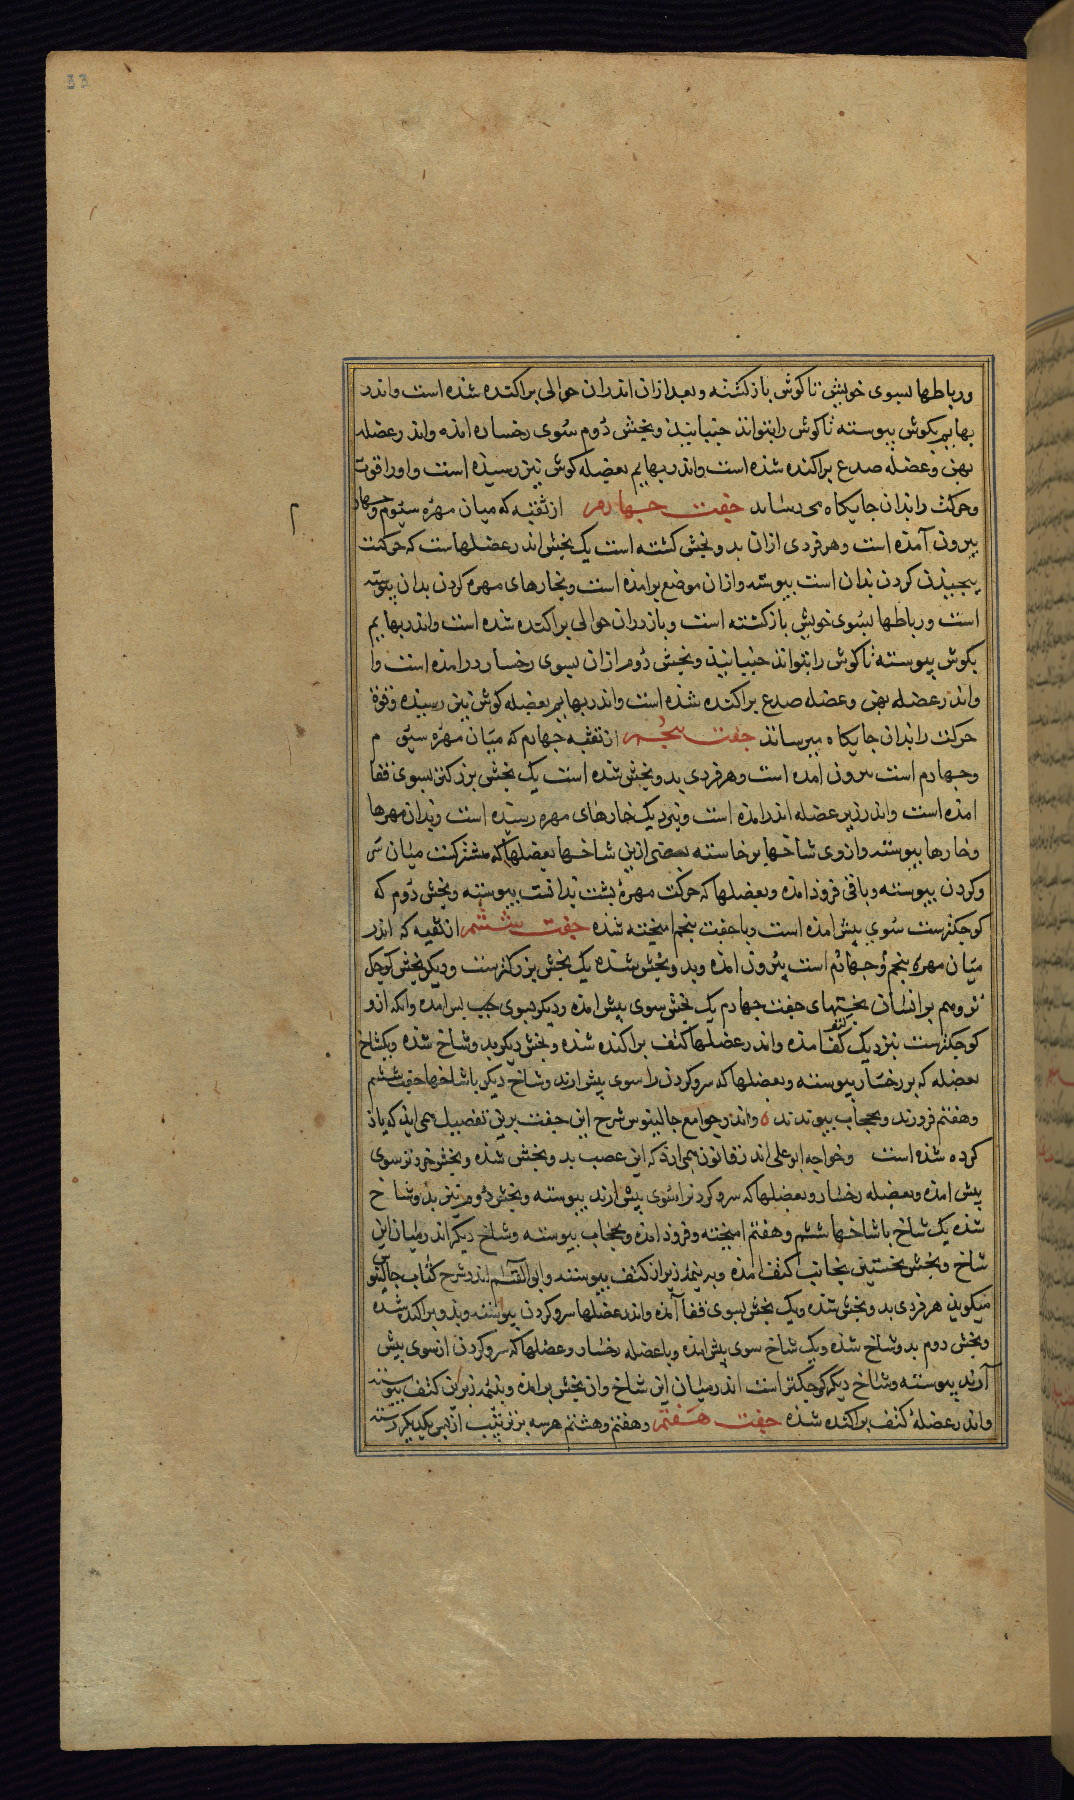 33
ورباطها بسوی خویش تا کوش باز کشته وبعد ازان اندران حوالی براکنده شده است واندر
بهایم بکوش بیوسته تا کوش را بتواند جنبانیذن وبخش دوم سوی رخساره امذه واندر عضله
بهن وعضله صدع براکنده شذه است واندر بهایم بعضله کوش نیز رسیذه است واو را قوت
وحرکت را بذان جایکاه می رساند جفت جهارم از ثقبه که میان مهره سیوم وجهارم
بیرون آمذه است وهر فردی ازان بدو بخش کشته است یک بخش اندر عضلهاست که حرکت
بیجیذن کردن بذان است بیوسته وازان موضع برامذه است وبخارهای مهره کردن بدان بیوسته
است ورباطها بسوی خویش باز کشته است وباز دران حوالی براکنده شده است واندر بهایم
بکوش بیوسته تا کوش را بتواند جنبانیذن وبخش دوم ازان بسوی رخسار درامذه است وا
واندر عضله بهن وعضله صدع براکنده شذه است واندر بهایم بعضله کوش نیز رسیذه وقوة
حرکت را بذان جایکاه میرساند جفت بنجم از ثقبه جهارم که میان مهره سیو م
وجهارم است بیرون امده است وهر فردی بدو بخش شده است یک بخش بزرکتر بسوی قفا
امذه است واندر زیر عضله اندر امذه است وبنزدیک خارهای مهره رسیذه است وبدان مهرها
وخارها بیوسته وازوی شاخها برخاسته بعضی ازین شاخها بعضلها که مشترکست میان سر
وکردن بیوسته وباقی فروذ امذه وبعضلها که حرکت مهرۀ بشت بذانست بیوسته وبخش دوم که
کوجکترست سوی بیش امذه است وبا جفت بنجم امیخته شذه جفت ششم از ثقبه که اندر
میان مهره بنجم وجهارم است بیرون امذه وبدو بخش شذه یک بخش بزرکترست ودیکر بخش کوجک
تر وهم برانسان بخشهای جفت جهارم یک بخش سوی بیش امذه ودیکر بسوی بس امده وانکه ازو
کوجکترست بنزدیک کتف امذه واندر عضلها کتف براکنده شذه وبخش دیکر بدو شاخ شذه ویکشاخ
بعضله که بر رخسار بیوسته وبعضلها که سر وکردن را سوی بیش ارند وشاخ دیکر با شاخها جفت ششم
وهفتم فروزند وبحجاب بیوندند ه واندر جوامع جالینوس شرح این جفت برین تفصیل همی ایذ که یاذ
کرده شذه است وخواجه ابو علی اندر قانون همی ارذ که این عصب بدو بخش شذه وبخش خردتر سوی
بیش امذه وبعضله رخسار وبعضلها که سر وکردن را سوی بیش ارند بیوسته وبخش دوم نیز بدو شاخ
شذه یک شاخ با شاخها ششم وهفتم امیخته وفروذ امذه وبحجاب بیوسته وشاخ دیکر اندر میان این
شاخ وبخش نخستین بجانب کتف امذه وبه نیمه زیر از کتف بیوستند وابن القاسم اندر شرح کتاب جالینوس
میکوید هر فردی بدو بخش شذه ویک بخش بسوی قفا آمده واندر عضلها سر وکردن بیوسته وبدو براکنده شده
وبخش دوم بدو شاخ شذه ویک شاخ سوی بیش امذه وبا عضله رخسار وعضلها که سر وکردن از سوی بیش
آرند بیوسته وشاخ دیکر کوجکتر است اندر میان این شاخ وان بخش برامذه وبنیمه زیرین کتف بیوسته
واندر عضلۀ کتف براکنده شذه جفت هفتم وهفتم وهشتم هرسه برترتیب از بس یکدیکر رسته